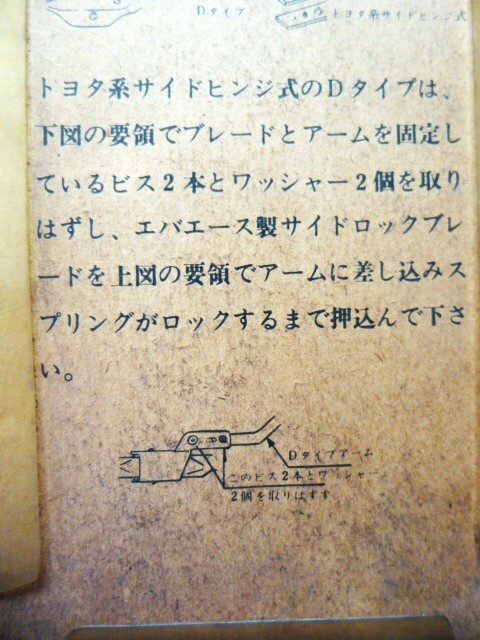 Dタイプ
トヨタ系サイドヒンジ式
トヨタ系サイドヒンジ式のDタイプは、
下図の要領でブレードとアームを固定し
ているビス2本とワッシャー2個を取り
はずし、エバエース製サイドロックブレ
ードを上図の要領でアームに差し込みス
プリングがロックするまで押込んで下さ
い。
Dタイプアーム
このビス2本とワッシャー
2個を取りはずす